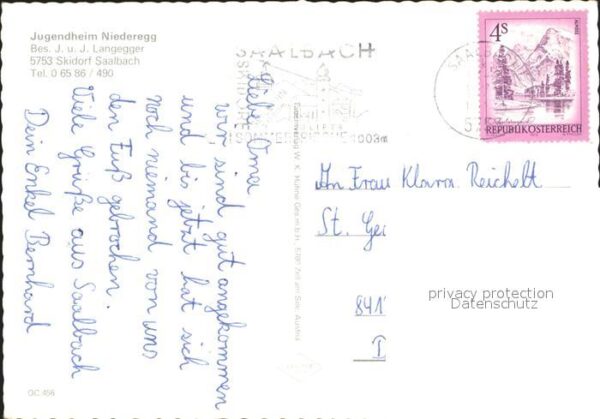 Jugendheim Niederegg
Bes. J. u. J. Langegger
5753 Skidorf Saalbach
Tel. 0 65 86 / 490
Liebe Oma
wir sind gut angekommen
und bis jetzt hat sich
noch niemand von uns
den Fuß gebrochen.
Viele Grüße aus Saalbach
Dein Enkel Bernhard
OC 456
SAALBACH
1003m
4S
REPUBLIK ÖSTERREICH
An Frau Klara Reichelt
St. Ge
841
privacy protection
Datenschutz